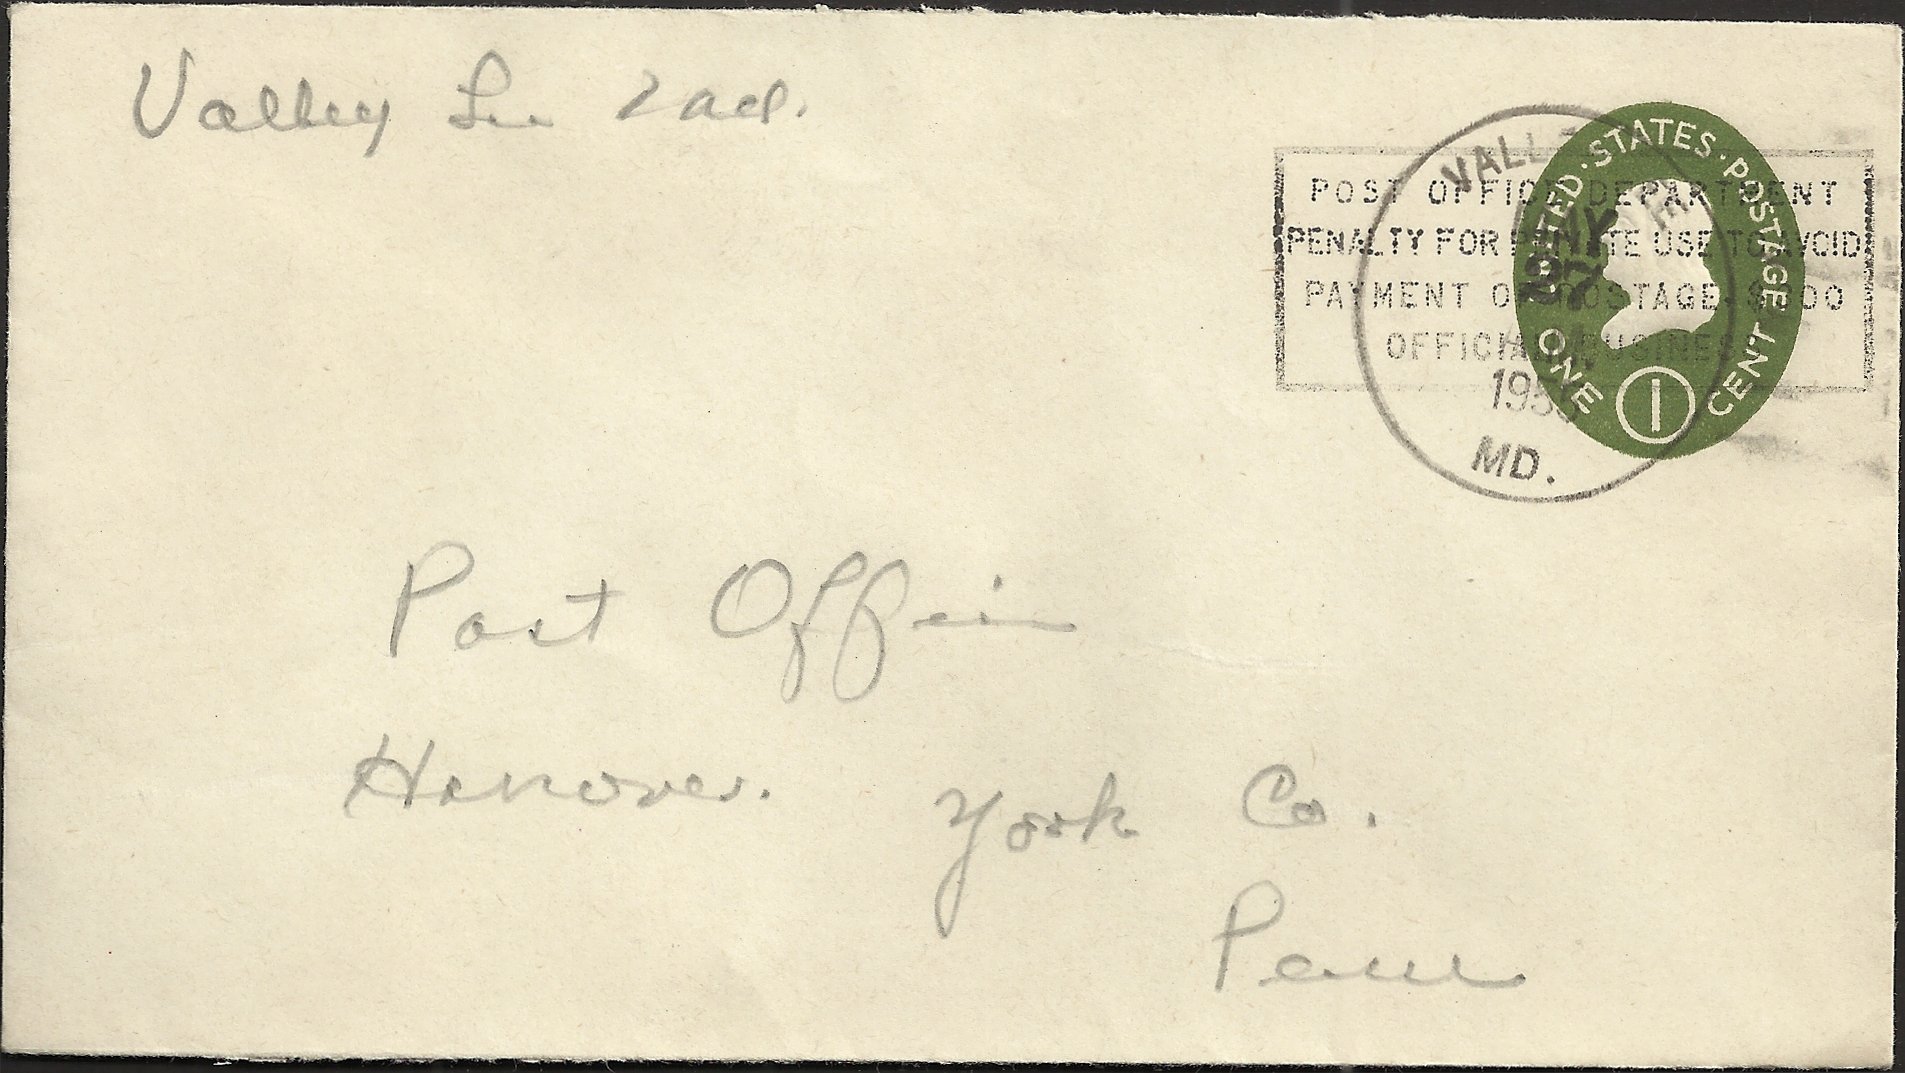 Valley Lee Md.
UNITED · STATES · POSTAGE
ONE CENT
1
POST OFFICE DEPARTMENT
PENALTY FOR PRIVATE USE TO AVOID
PAYMENT OF POSTAGE, $300
OFFICIAL BUSINESS
VALLEY LEE
MD.
Post Office
Hanover. York Co.
Penn